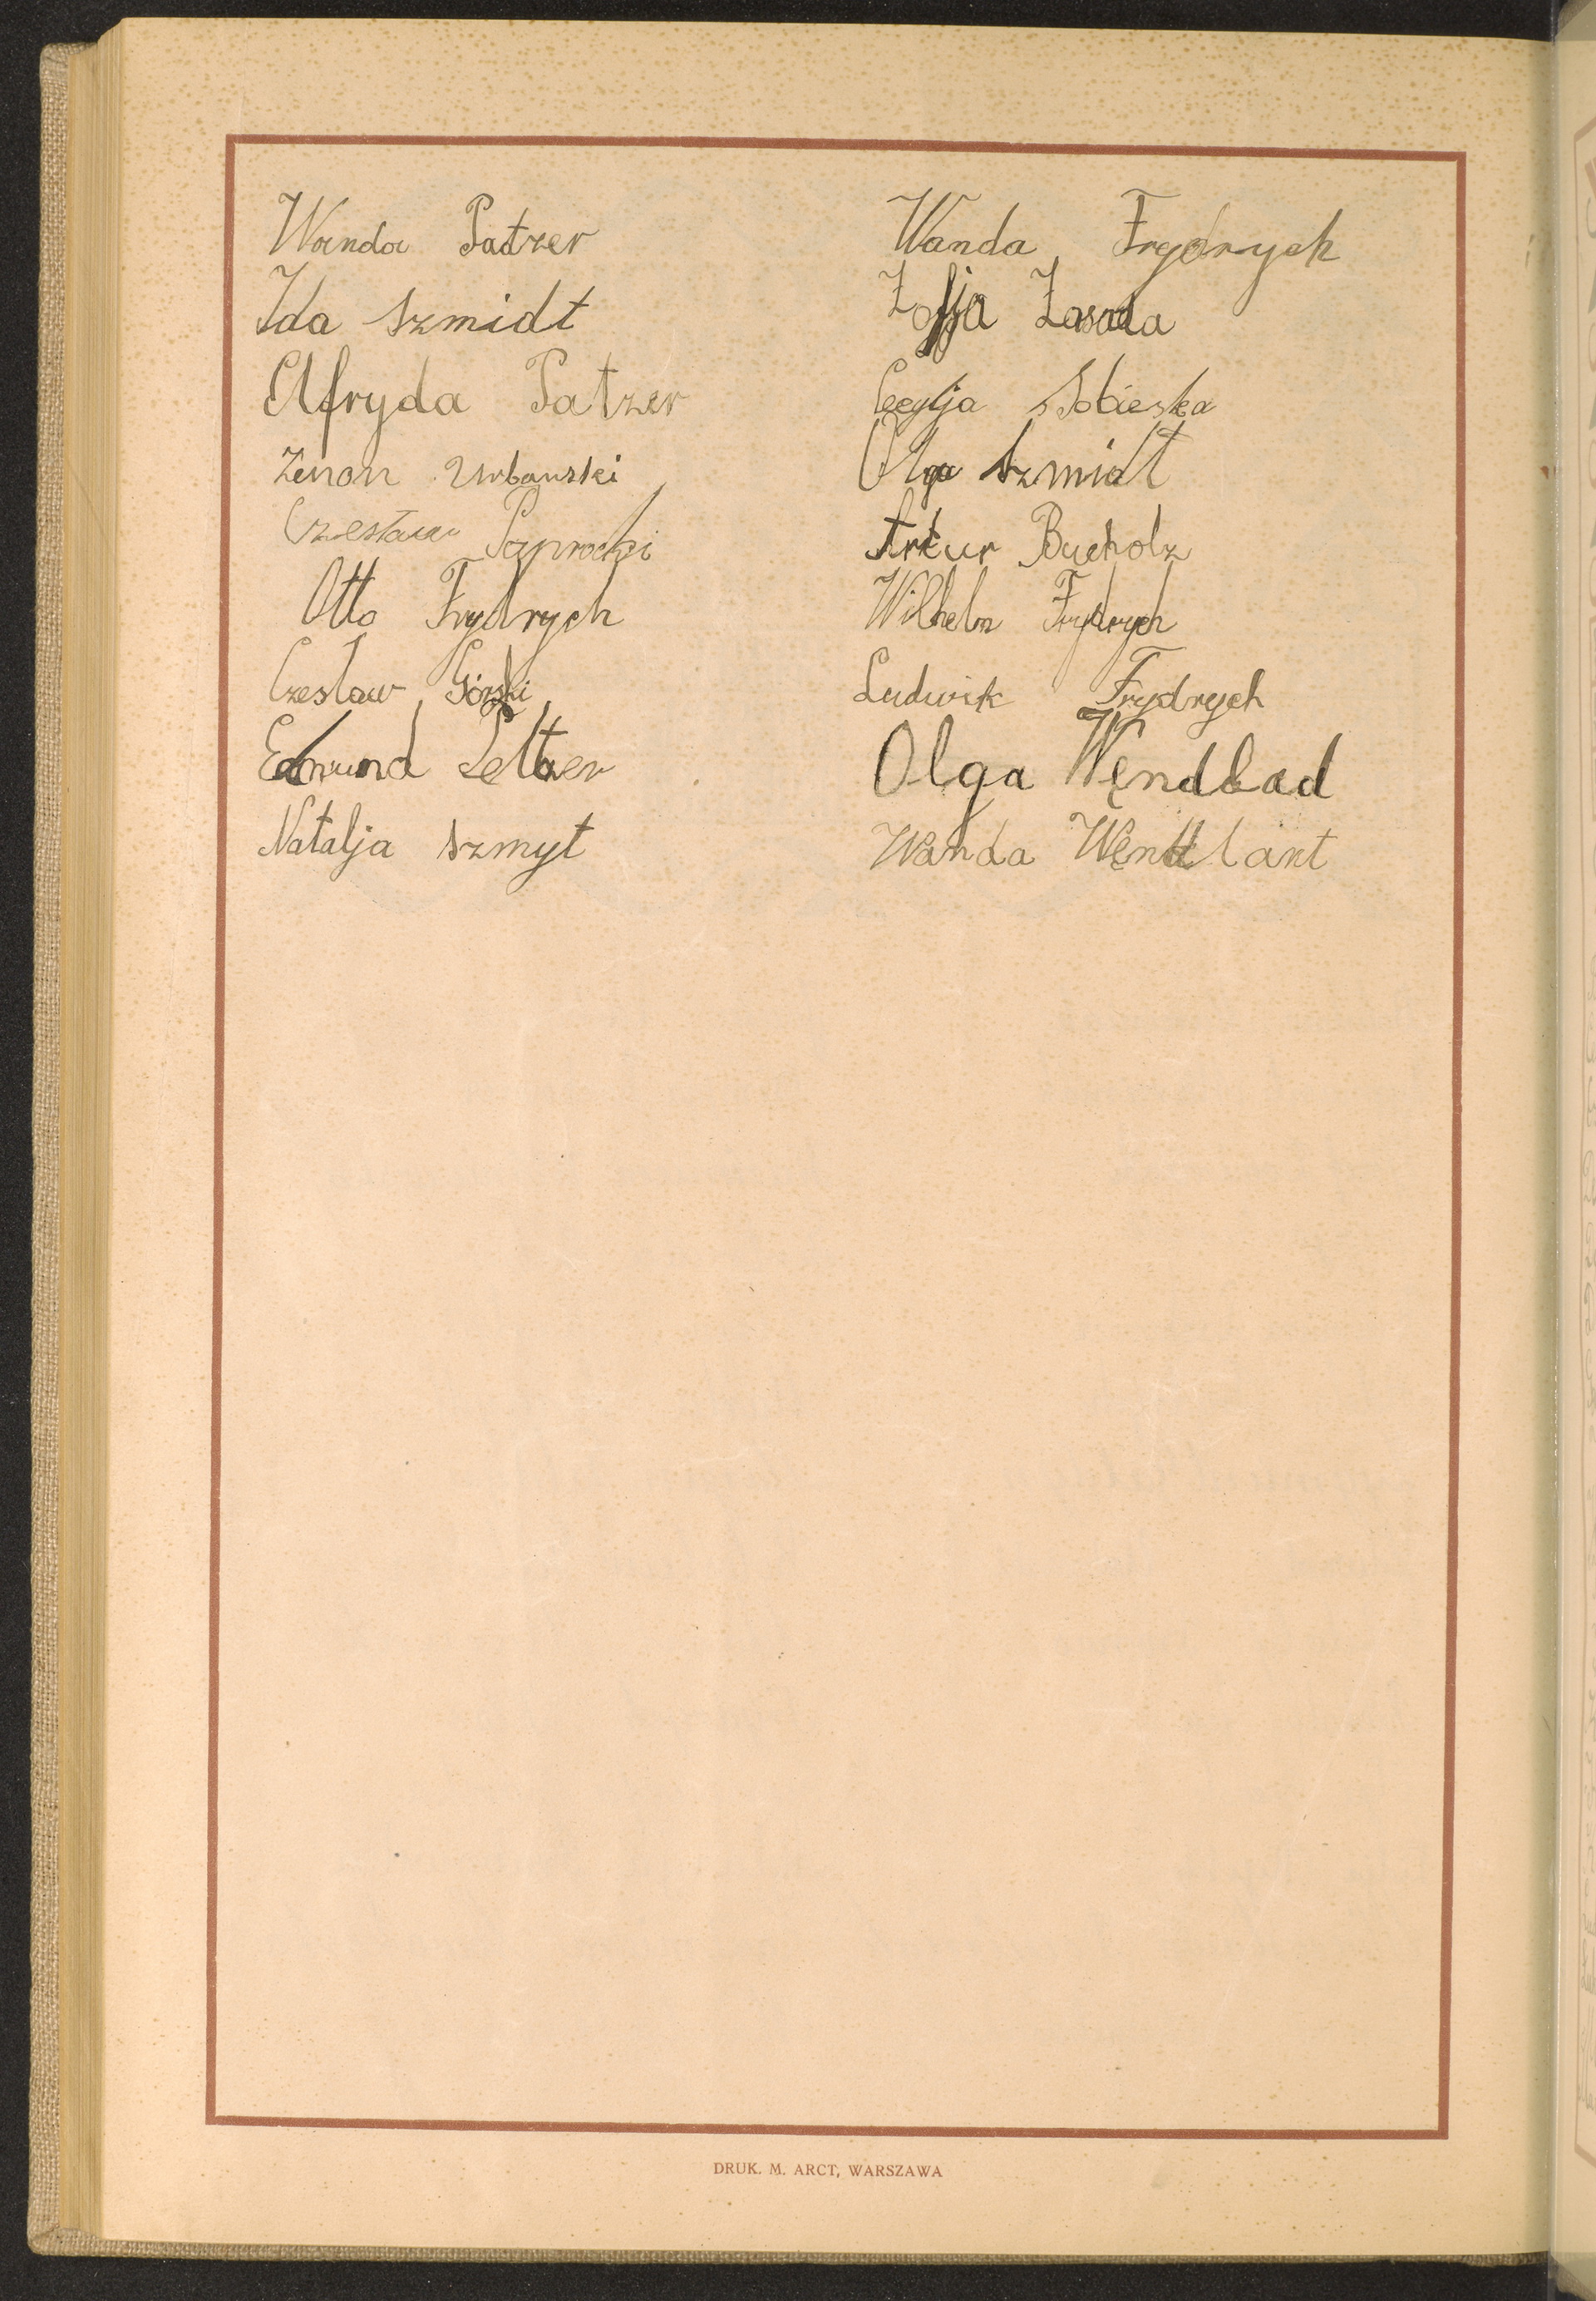 Wanda Patzer
Ida Szmidt
Elfryda Patzer
Zenon Urbański
Czesław Paprocki
Otto Frydrych
Czesław Górski
Edmund Seltzer
Natalja Szmyt
Wanda Frydrych
Zofja Zasada
Cecylja Sobieska
Olga Szmidt
Artur Bucholz
Wilhelm Frydrych
Ludwik Frydrych
Olga Węndlad
Wanda Węntlant
DRUK. M. ARCT, WARSZAWA